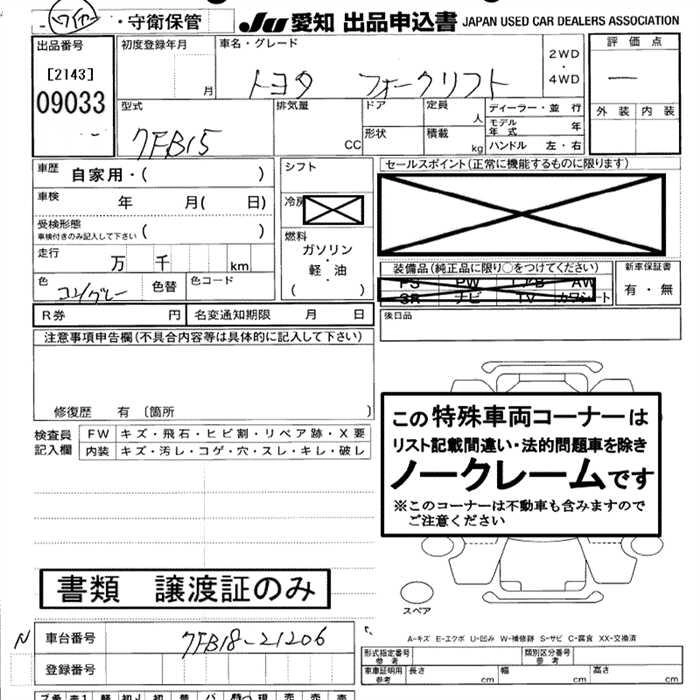 ・守衛保管
JU 愛知 出品申込書 JAPAN USED CAR DEALERS ASSOCIATION
出品番号
[2143]
09033
初度登録年月
月
車名・グレード
トヨタ フォークリフト
2WD
・
4WD
評価点
外装 内装
型式
7FB15
排気量
CC
ドア
形状
定員
人
積載
kg
ディーラー・並行
モデル年式
年
ハンドル 左・右
車歴
自家用・( )
車検
年 月( 日)
受検形態
車検付きのみ記入して下さい
( )
走行
万 千 km
色
コン/グレー
色替
色コード
シフト
冷房
燃料
ガソリン
・
軽・油
( )
R券 円 名変通知期限 月 日
セールスポイント(正常に機能するものに限ります)
装備品(純正品に限り○をつけてください)
PS PW エアB AW
SR ナビ TV カワシート
新車保証書
有・無
後日品
注意事項申告欄(不具合内容等は具体的に記入して下さい)
修復歴 有〔箇所 〕
検査員記入欄
FW キズ・飛石・ヒビ割・リペア跡・X要
内装 キズ・汚レ・コゲ・穴・スレ・キレ・破レ
この特殊車両コーナーは
リスト記載間違い・法的問題車を除き
ノークレームです
※このコーナーは不動車も含みますので
ご注意ください
書類 譲渡証のみ
スペア
A-キズ E-エクボ U-凹み W-補修跡 S-サビ C-腐食 XX-交換済
N
車台番号
7FB18-21206
登録番号
形式指定番号
参考
類別区分番号
参考
車庫証明用
参考
長さ cm 幅 cm 高さ cm